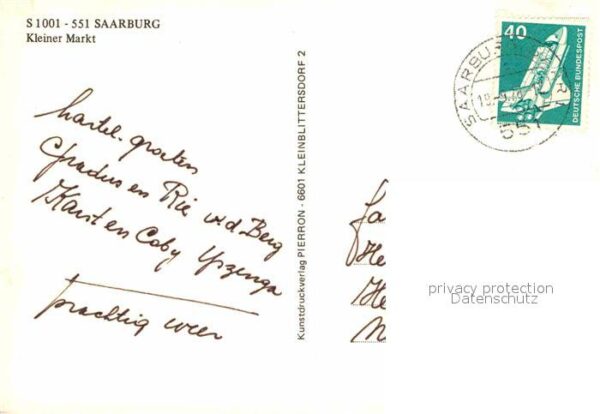 S 1001 - 551 SAARBURG
Kleiner Markt
hartel. groeten
en Rie v.d Berg
Karst en Coby Ypzenga
prachtig weer
Kunstdruckverlag PIERRON - 6601 KLEINBLITTERSDORF 2
40
DEUTSCHE BUNDESPOST
SAARBURG
551
privacy protection
Datenschutz